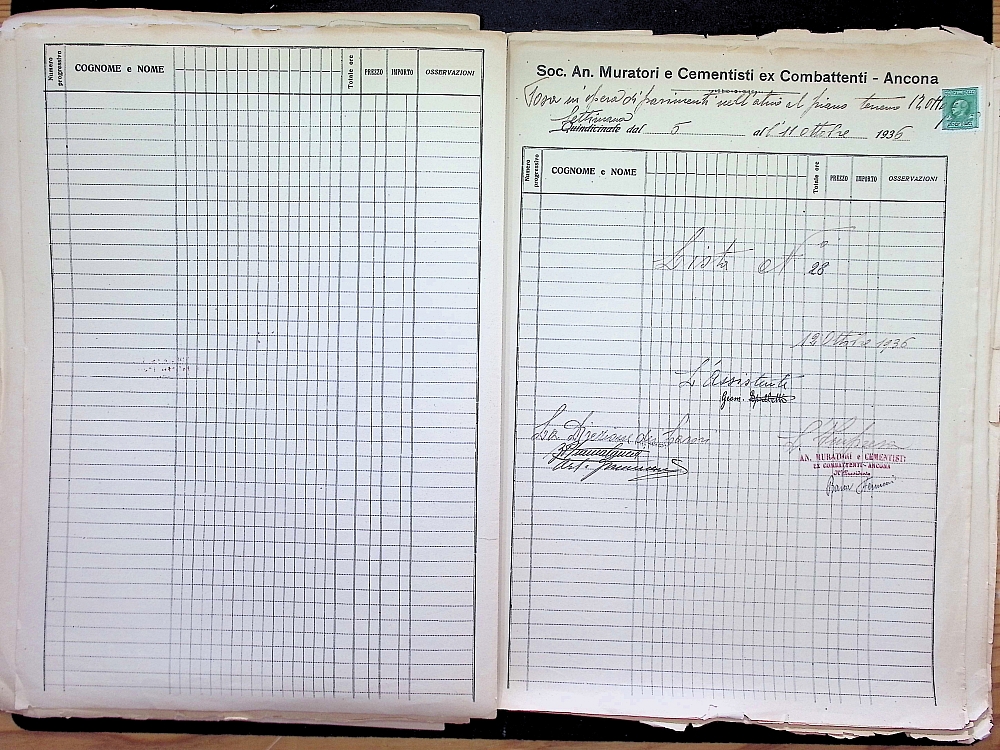 Numero progressivo COGNOME e NOME Totale ore PREZZO IMPORTO OSSERVAZIONI
Soc. An. Muratori e Cementisti ex Combattenti - Ancona
Posa in opera di pavimenti nell'atrio al piano terreno
Settimana
Quindicinale dal 5 al l'11 Ottobre 1936
Numero progressivo COGNOME e NOME Totale ore PREZZO IMPORTO OSSERVAZIONI
Lista N° 28
12 Ottobre 1936
L'Assistente
Geom.
La Direzione dei Lavori
L'Impresa
AN. MURATORI e CEMENTISTI
EX COMBATTENTI - ANCONA
Il Presidente